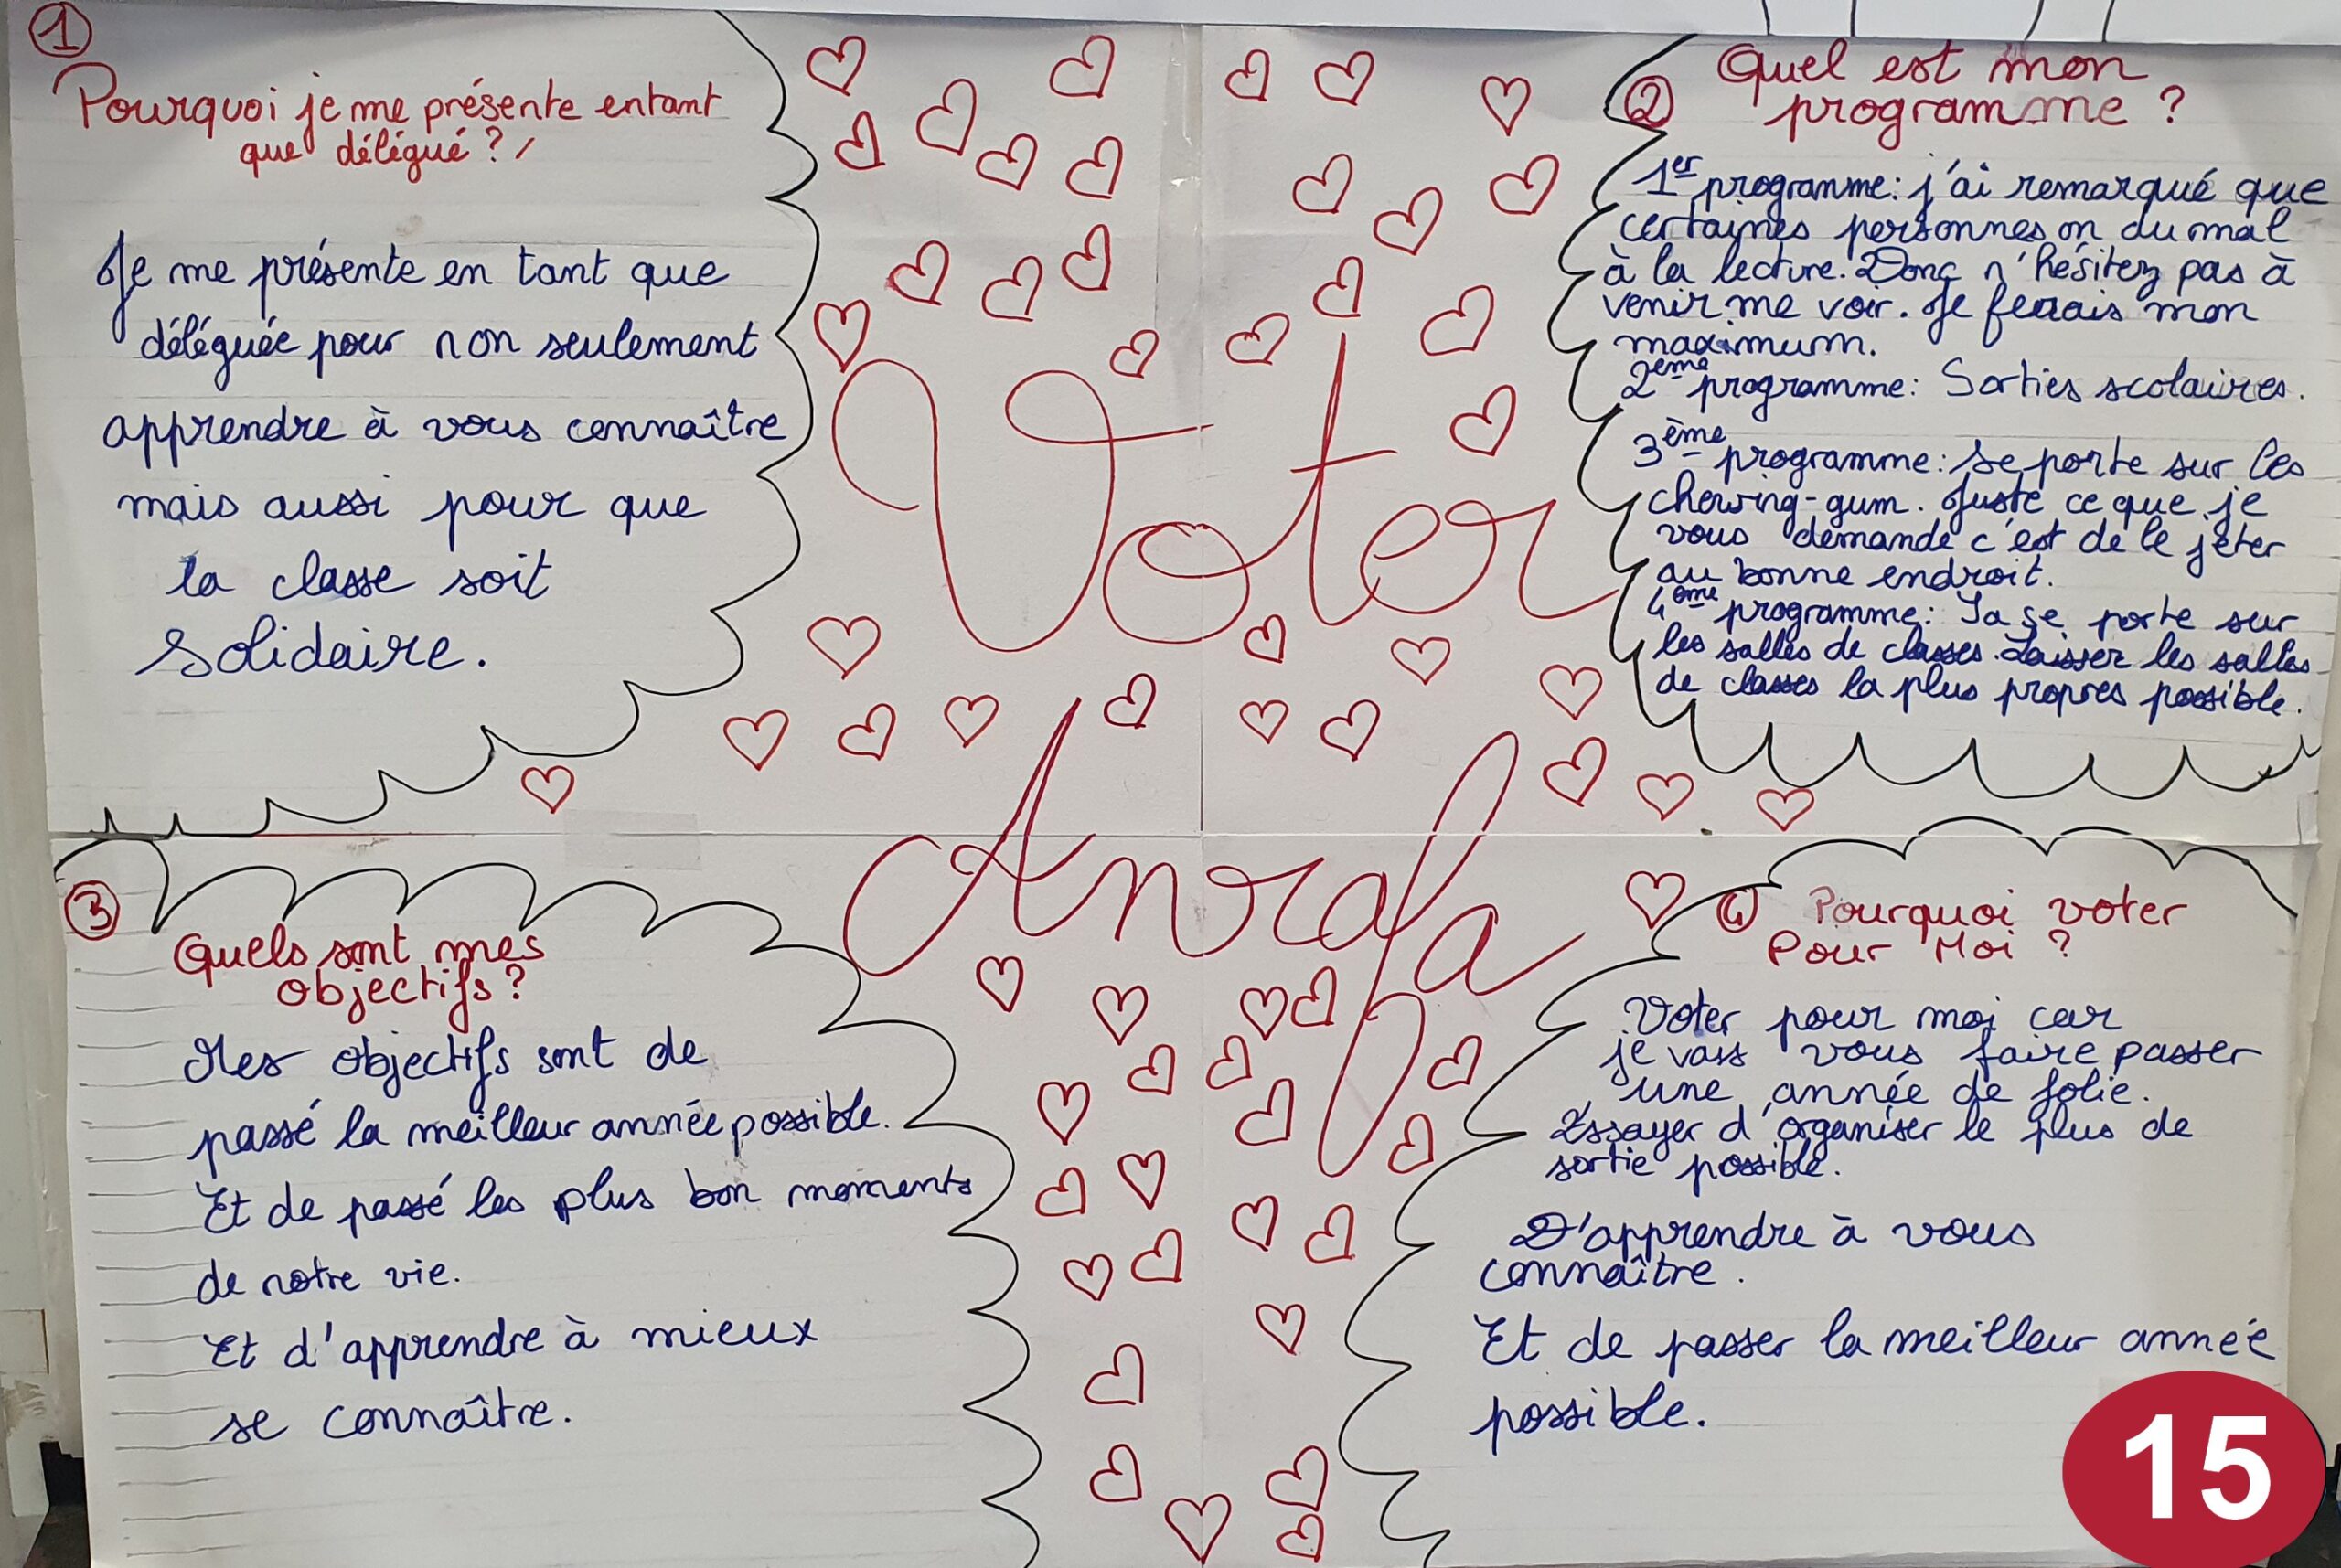 1
Pourquoi je me présente entant
que délégué ?
Je me présente en tant que
déléguée pour non seulement
apprendre à vous connaître
mais aussi pour que
la classe soit
Solidaire.
Voter
Anrafa
2
Quel est mon
programme ?
1er programme : j'ai remarqué que
certaines personnes on du mal
à la lecture. Donc n'hésitez pas à
venir me voir. Je ferais mon
maximum.
2ème programme : Sorties scolaires.
3ème programme : se porte sur les
chewing-gum. Juste ce que je
vous demande c'est de le jeter
au bonne endroit.
4ème programme : Sa se porte sur
les salles de classes. Laisser les salles
de classes la plus propres possible.
3
Quels sont mes
objectifs ?
Mes objectifs sont de
passé la meilleur année possible.
Et de passé les plus bon moments
de notre vie.
Et d'apprendre à mieux
se connaître.
4 Pourquoi voter
Pour Moi ?
Voter pour moi car
je vais vous faire passer
une année de folie.
Essayer d'organiser le plus de
sortie possible.
D'apprendre à vous
connaître.
Et de passer la meilleur année
possible.
15